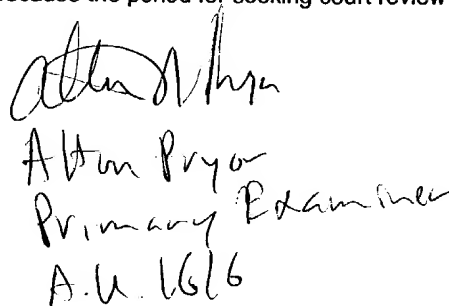 because the period for seeking court review
Alton N Pryor
Alton Pryor
Primary Examiner
A.U. 1616